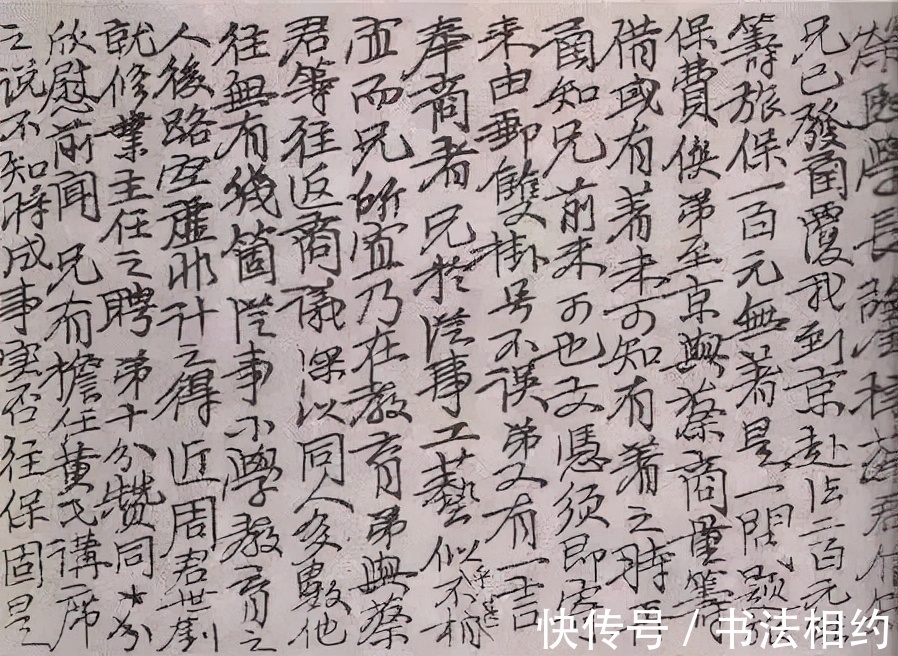 榮熙學長
兄已發函覆我到京赴法二百元
籌旅保一百元無著是一問題
保費俟弟至京與蔡商量籌
借或有着未可知有着之時
函知兄前來可也文憑須即寄
來由郵雙掛号不误弟又有一言
奉商者兄於陸事工藝似不相
宜而兄所宜乃在教育弟與蔡
君等往返商議深以同人多數他
往無有幾箇陸事小學教育之
人後路空虛非计之得近周君世釗
就修業主任之聘弟十分贊同
欣慰前闻兄有擔任黄氏講席
之说不知将成事实否往保固是
快传号 / 书法相约